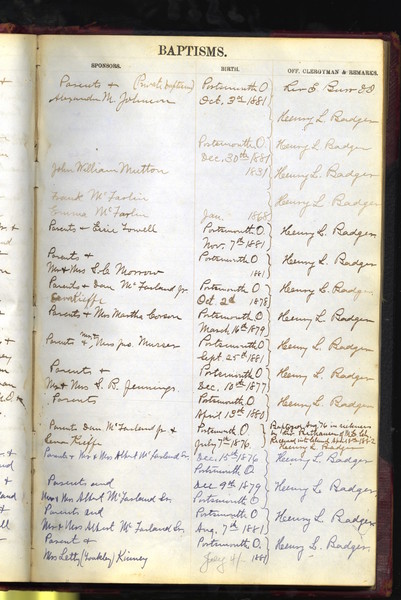 BAPTISMS.
SPONSORS. BIRTH. OFF. CLERGYMAN & REMARKS.
Parents & (Private baptism) Portsmouth O Rev E. Burr DD
Alexander M. Johnson Oct. 3rd 1881
Henry L. Badger
Portsmouth O. Henry L. Badger
Dec. 30th 1881
John William Mutton 1831 Henry L. Badger
Frank McFarlin Henry L. Badger
Emma McFarlin Jan. 1868
Parents & Lowell Portsmouth O. Henry L. Badger
Nov. 7th 1881
Parents & Portsmouth O. Henry L. Badger
Mr & Mrs L. C. Morrow 1881
Parents & Dan McFarland Jr. Portsmouth O. Henry L. Badger
Oct. 2d 1878
Parents & Mrs Martha Corson Portsmouth O. Henry L. Badger
March 16th 1879
Parents & Mr & Mrs Jno. Musser Portsmouth O. Henry L. Badger
Sept 25th 1881
Parents & Portsmouth O. Henry L. Badger
Mr & Mrs G. B. Jennings Dec. 10th 1877
Parents Portsmouth O. Henry L. Badger
April 13th 1880
Parents Dan McFarland Jr & Portsmouth O. Baptized Aug 76 in
Lena July 7th 1876. by
Henry L. Badger
Parents & Mr & Mrs Albert McFarland Sr. Dec. 15th 1876 Henry L. Badger
Portsmouth O.
Parents and Dec 9th 1879 Henry L. Badger
Mr & Mrs Albert McFarland Sr. Portsmouth O.
Parents and Portsmouth O. Henry L. Badger
Mr & Mrs Albert McFarland Sr. Aug. 7th 1881
Parent & Portsmouth O. Henry L. Badger
Mrs Letty Kinney 1881